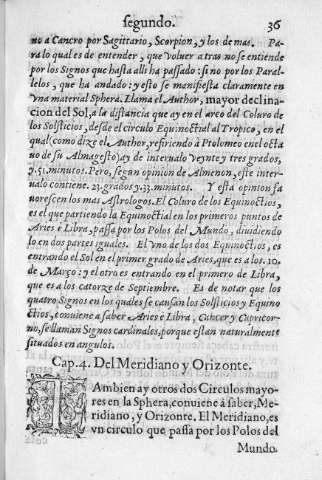 segundo. 36
no a Cancro por Sagittario, Scorpion, y los de mas. Pa-
ra lo qual es de entender, que voluer a tras no se entiende
por los Signos que hasta alli ha passado: si no por los Paral-
lelos, que ha andado: y esto se manifiesta claramente en
vna material Sphera. Llama el Author, mayor declina-
cion del Sol, a la distancia que ay en el arco del Coluro de
los Solsticios, desde el circulo Equinoctial al Tropico, en el
qual (como dize el Author, refiriendo à Ptolomeo en el octa
uo de su Almagesto) ay de interualo veynte y tres grados,
y.51.minutos. Pero, segun opinion de Almenon, este inter-
ualo contiene.23.grados y.33.minutos. Y esta opinion fa
uorescen los mas Astrologos. El Coluro de los Equinoctios,
es el que partiendo la Equinoctial en los primeros puntos de
Aries e Libra, passa por los Polos del Mundo, diuidiendo
lo en dos partes iguales. El vno de los dos Equinoctios, es
entrando el Sol en el primer grado de Aries, que es a los.10.
de Março: y el otro es entrando en el primero de Libra,
que es a los catorze de Septiembre. Es de notar que los
quatro Signos en los quales se causan los Solsticios y Equino
ctios, conuiene a saber Aries e Libra, Cancer y Capricor-
no, se llaman Signos cardinales, porque estan naturalmente
situados en angulos.
Cap.4. Del Meridiano y Orizonte.
TAmbien ay otros dos Circulos mayo-
res en la Sphera, conuiene à saber, Me-
ridiano, y Orizonte. El Meridiano, es
vn circulo que passa por los Polos del
Mundo.